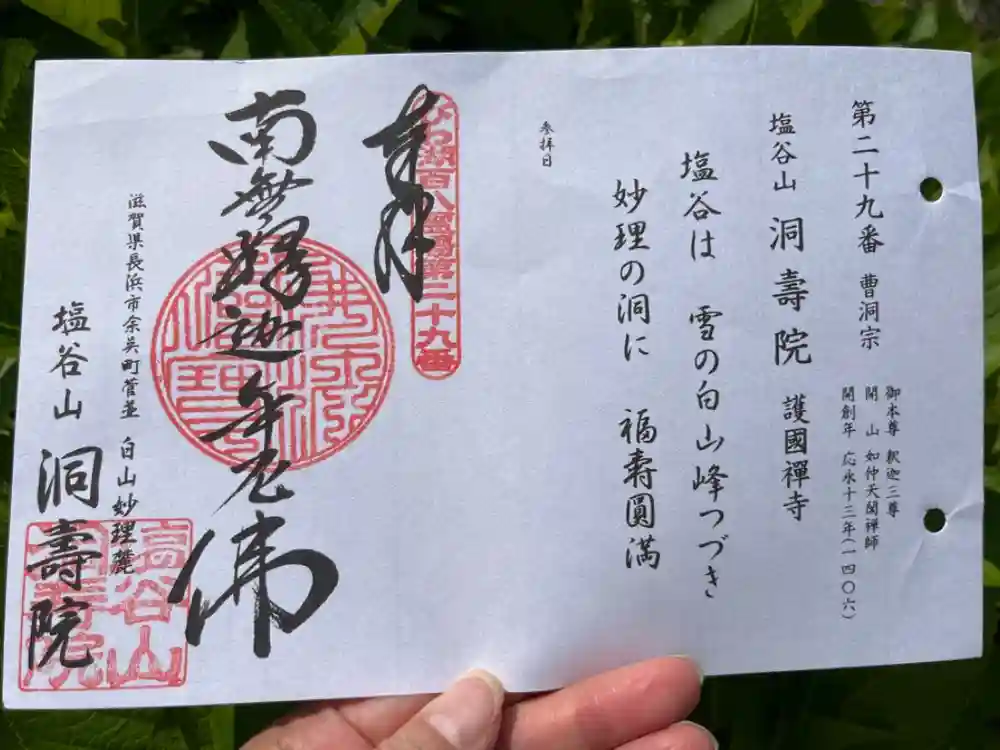 第二十九番 曹洞宗
御本尊 釈迦三尊
開山 如仲天誾禅師
開創年 応永十三年(一四〇六)
塩谷山 洞壽院 護國禪寺
塩谷は 雪の白山峰つづき
妙理の洞に 福寿圓満
参拝日
奉拝
びわ湖百八霊場第二十九番
南無釋迦牟尼佛
滋賀県長浜市余呉町菅並 白山妙理麓
塩谷山 洞壽院
塩谷山
洞寿院